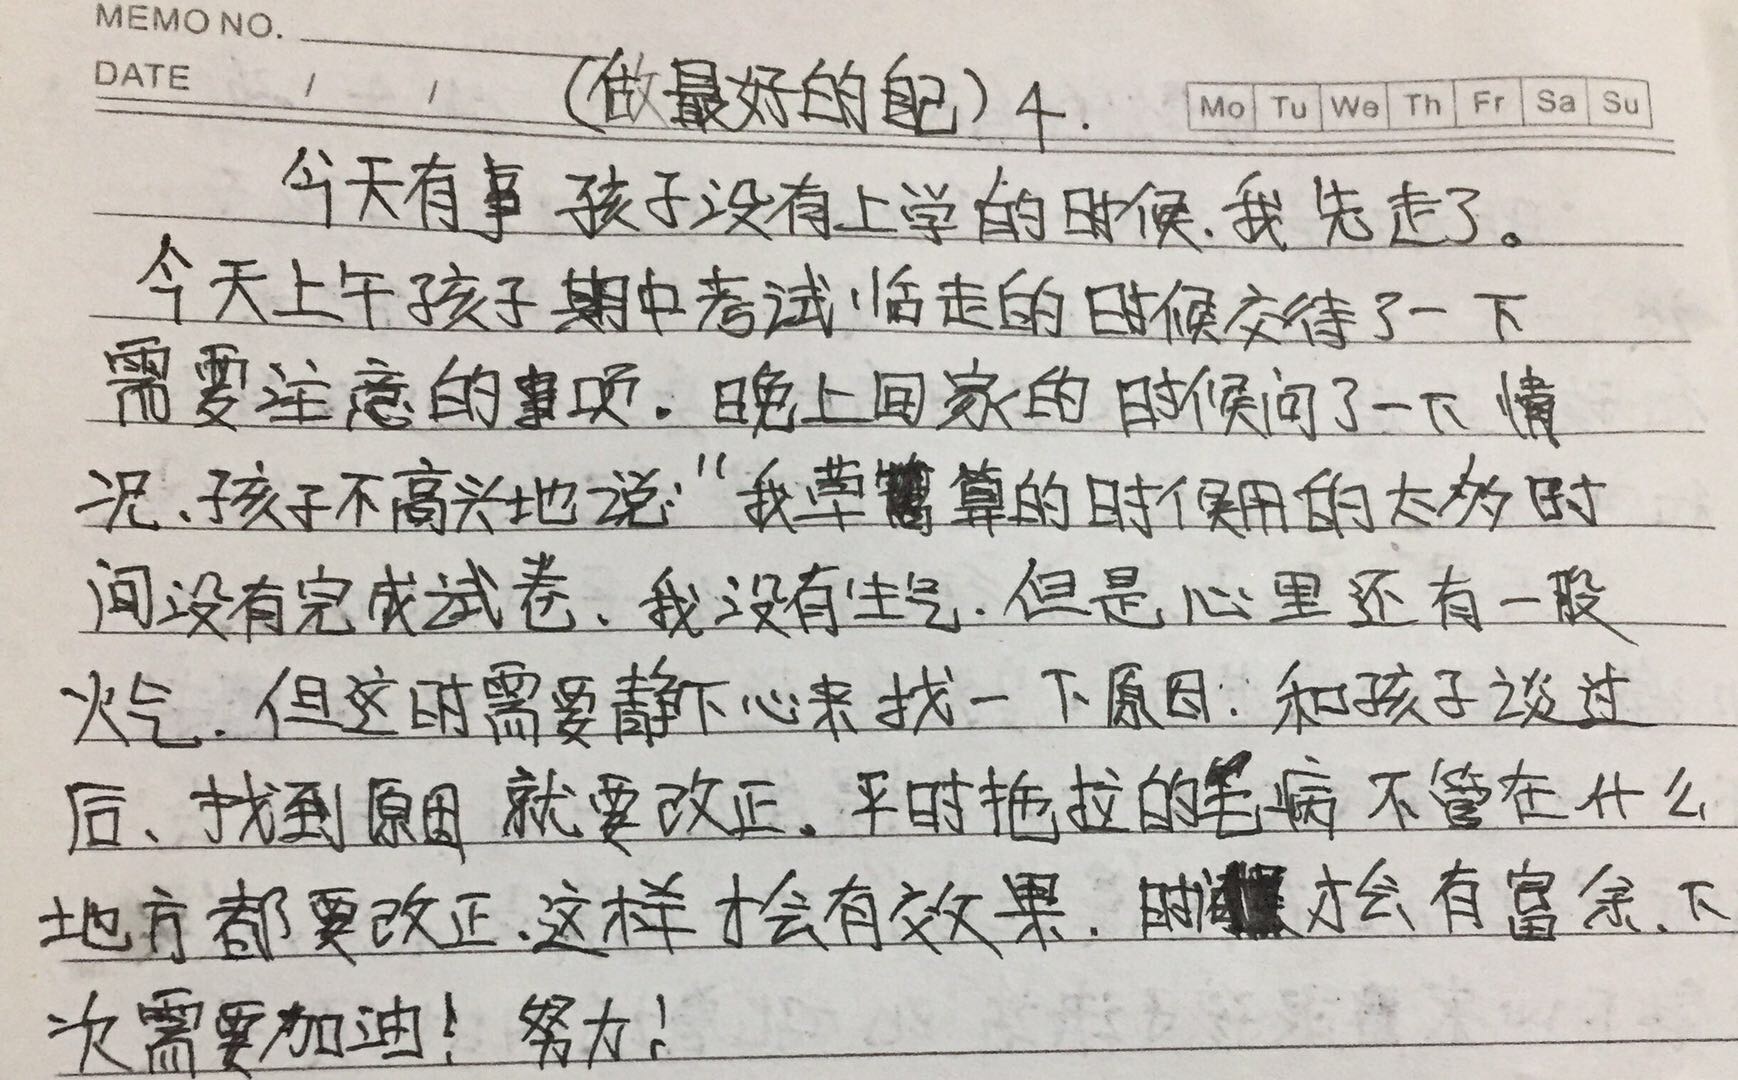 MEMO NO.
DATE / / (做最好的自己) 4. Mo Tu We Th Fr Sa Su
今天有事 孩子没有上学的时候、我先走了。
今天上午孩子期中考试临走的时候交待了一下
需要注意的事项。晚上回家的时候问了一下情
况、孩子不高兴地说:"我草算的时候用的太多时
间没有完成试卷、我没有生气.但是心里还有一股
火气.但这时需要静下心来找一下原因:和孩子谈过
后、找到原因就要改正。平时拖拉的毛病不管在什么
地方都要改正.这样才会有效果.时间才会有富余.下
次需要加油!努力!